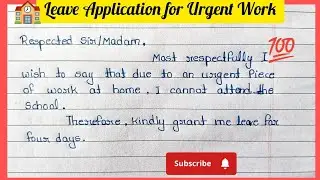 Leave Application for Urgent Work
Respected Sir/Madam,
100
Most respectfully I
wish to say that due to an urgent piece
of work at home, I cannot attend the
school.
Therefore, kindly grant me leave for
four days.
Subscribe